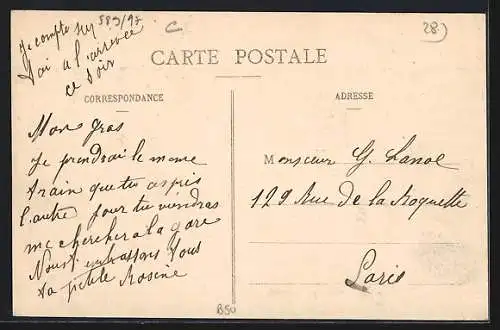 589/97
C
28)
Je compte sur
toi a l'arrivée
ce soir
CARTE POSTALE
CORRESPONDANCE
ADRESSE
Mon gras
Je prendrai le meme
train que tu as pris
l'autre jour tu viendras
me chercher a la gare
Nous t embrassons tous
ta petite Rosine
Monsieur G. Lanoe
129 Rue de la Roquette
Paris
B50